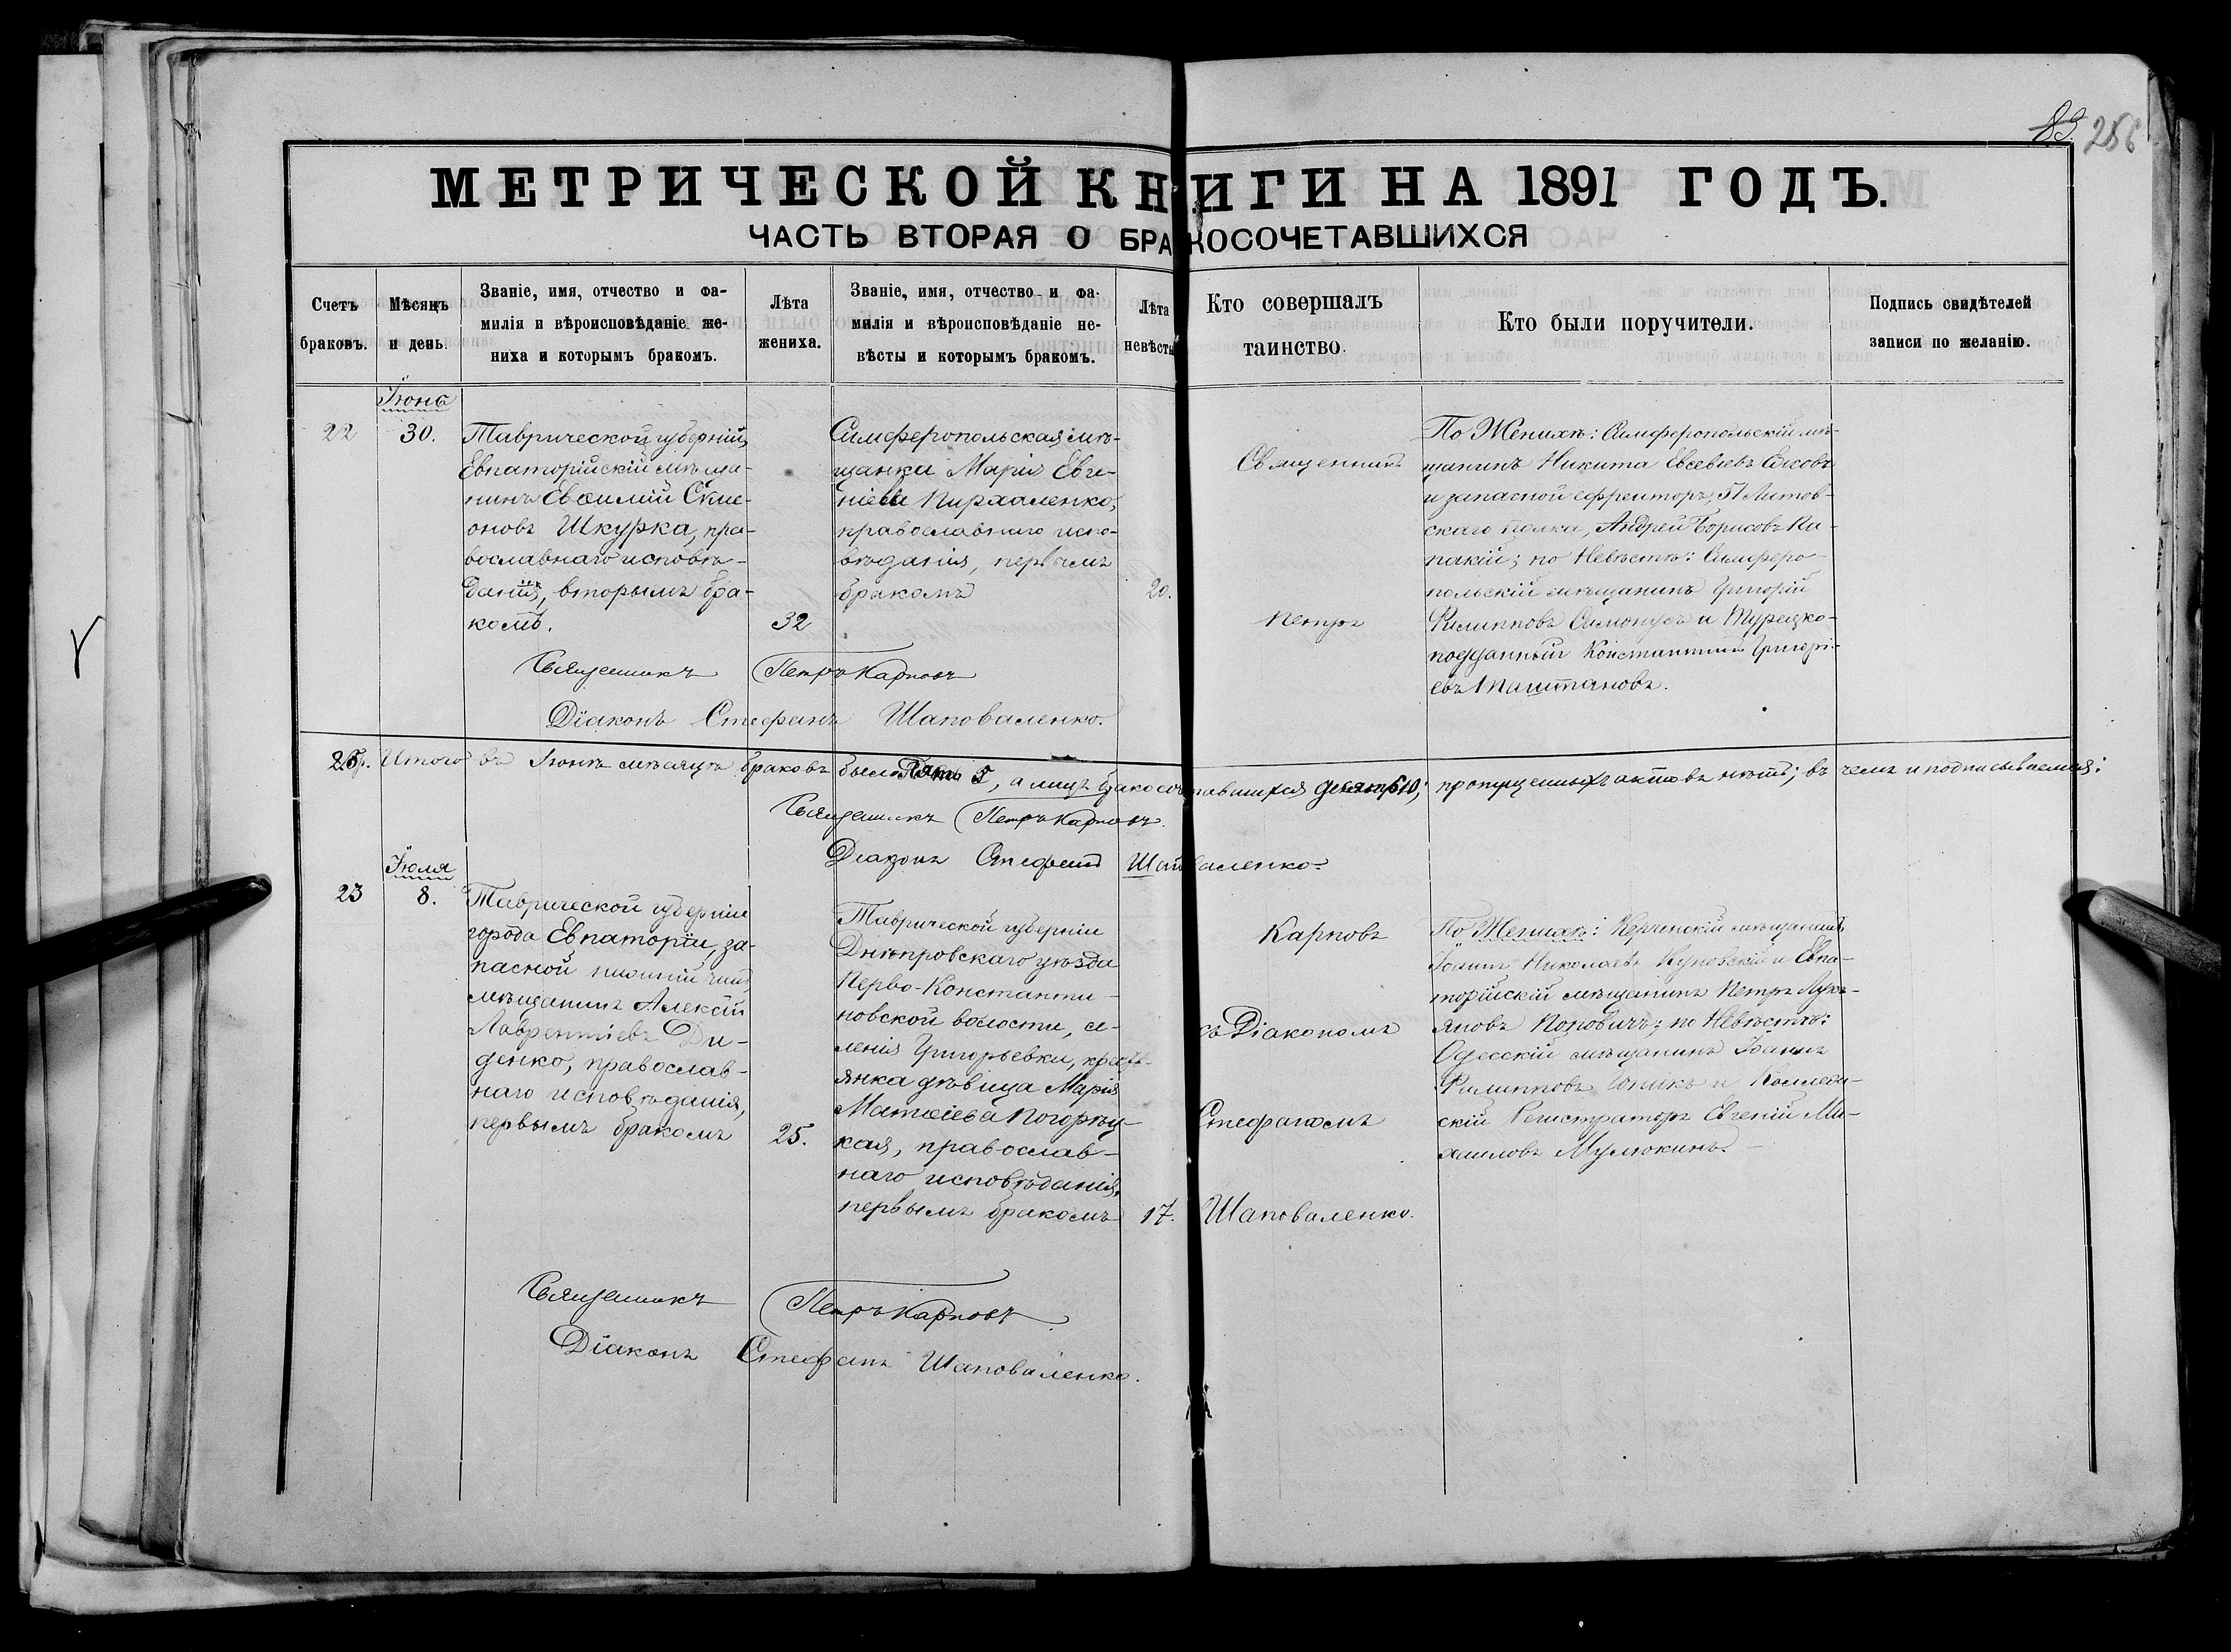 83. 256
МЕТРИЧЕСКОЙ КНИГИ НА 1891 ГОДЪ.
ЧАСТЬ ВТОРАЯ О БРАКОСОЧЕТАВШИХСЯ
Счетъ
браковъ.
Мѣсяцъ
и день.
Званіе, имя, отчество и фа-
милія и вѣроисповѣданіе же-
ниха и которымъ бракомъ.
Лѣта
жениха.
Званіе, имя, отчество и фа-
милія и вѣроисповѣданіе не-
вѣсты и которымъ бракомъ.
Лѣта
невѣсты
Кто совершалъ
таинство.
Кто были поручители.
Подпись свидѣтелей
записи по желанію.
Іюня
22
30.
Таврической губерніи,
Евпаторійскій мѣща-
нинъ Евѳимій Симе-
оновъ Шкурка, пра-
вославнаго исповѣ-
данія, вторымъ бра-
комъ.
32
Симферопольская мѣ-
щанка Марія Евге-
ніева
православнаго испо-
вѣданія, первымъ
бракомъ
20.
Священникъ
Петръ
По Женихѣ: Симферопольскій мѣ-
щанинъ Никита Евсевіевъ
и запасной ефрейторъ, 51 Литов-
скаго полка, Андрей Борисовъ Ки-
пакій; по Невѣстѣ: Симферо-
польскій мѣщанинъ Григорій
Филипповъ и Турецко-
подданный Константинъ Григорі-
евъ
Священникъ Петръ Карповъ
Діаконъ Стефанъ Шаповаленко.
Итого въ Іюнѣ мѣсяцѣ браковъ было Пять 5, а лицъ бракосочетавшихся десять 10; пропущенныхъ актовъ нѣтъ; въ чемъ и подписываемся:
Священникъ Петръ Карповъ.
Діаконъ Стефанъ Шаповаленко.
Іюля
23
8.
Таврической губерніи
города Евпаторіи, за-
пасной нижній чинъ
мѣщанинъ Алексій
Лаврентіевъ Ди-
денко, православ-
наго исповѣданія,
первымъ бракомъ
25.
Таврической губерніи
Днѣпровскаго уѣзда
Перво-Константи-
новской волости, се-
ленія Григорьевки, кресть-
янка дѣвица Марія
Матѳіева Погорѣц-
кая, православ-
наго исповѣданія,
первымъ бракомъ
17.
Карповъ
съ Діакономъ
Стефаномъ
Шаповаленко.
По Женихѣ: Керченскій мѣщанинъ
Іоаннъ Николаевъ и Евпа-
торійскій мѣщанинъ Петръ Лукь-
яновъ Поповичъ; по Невѣстѣ:
Одесскій мѣщанинъ Іоаннъ
Филипповъ и Коллеж-
скій Регистраторъ Евгеній Ми-
хаиловъ Мулюкинъ.
Священникъ Петръ Карповъ
Діаконъ Стефанъ Шаповаленко.